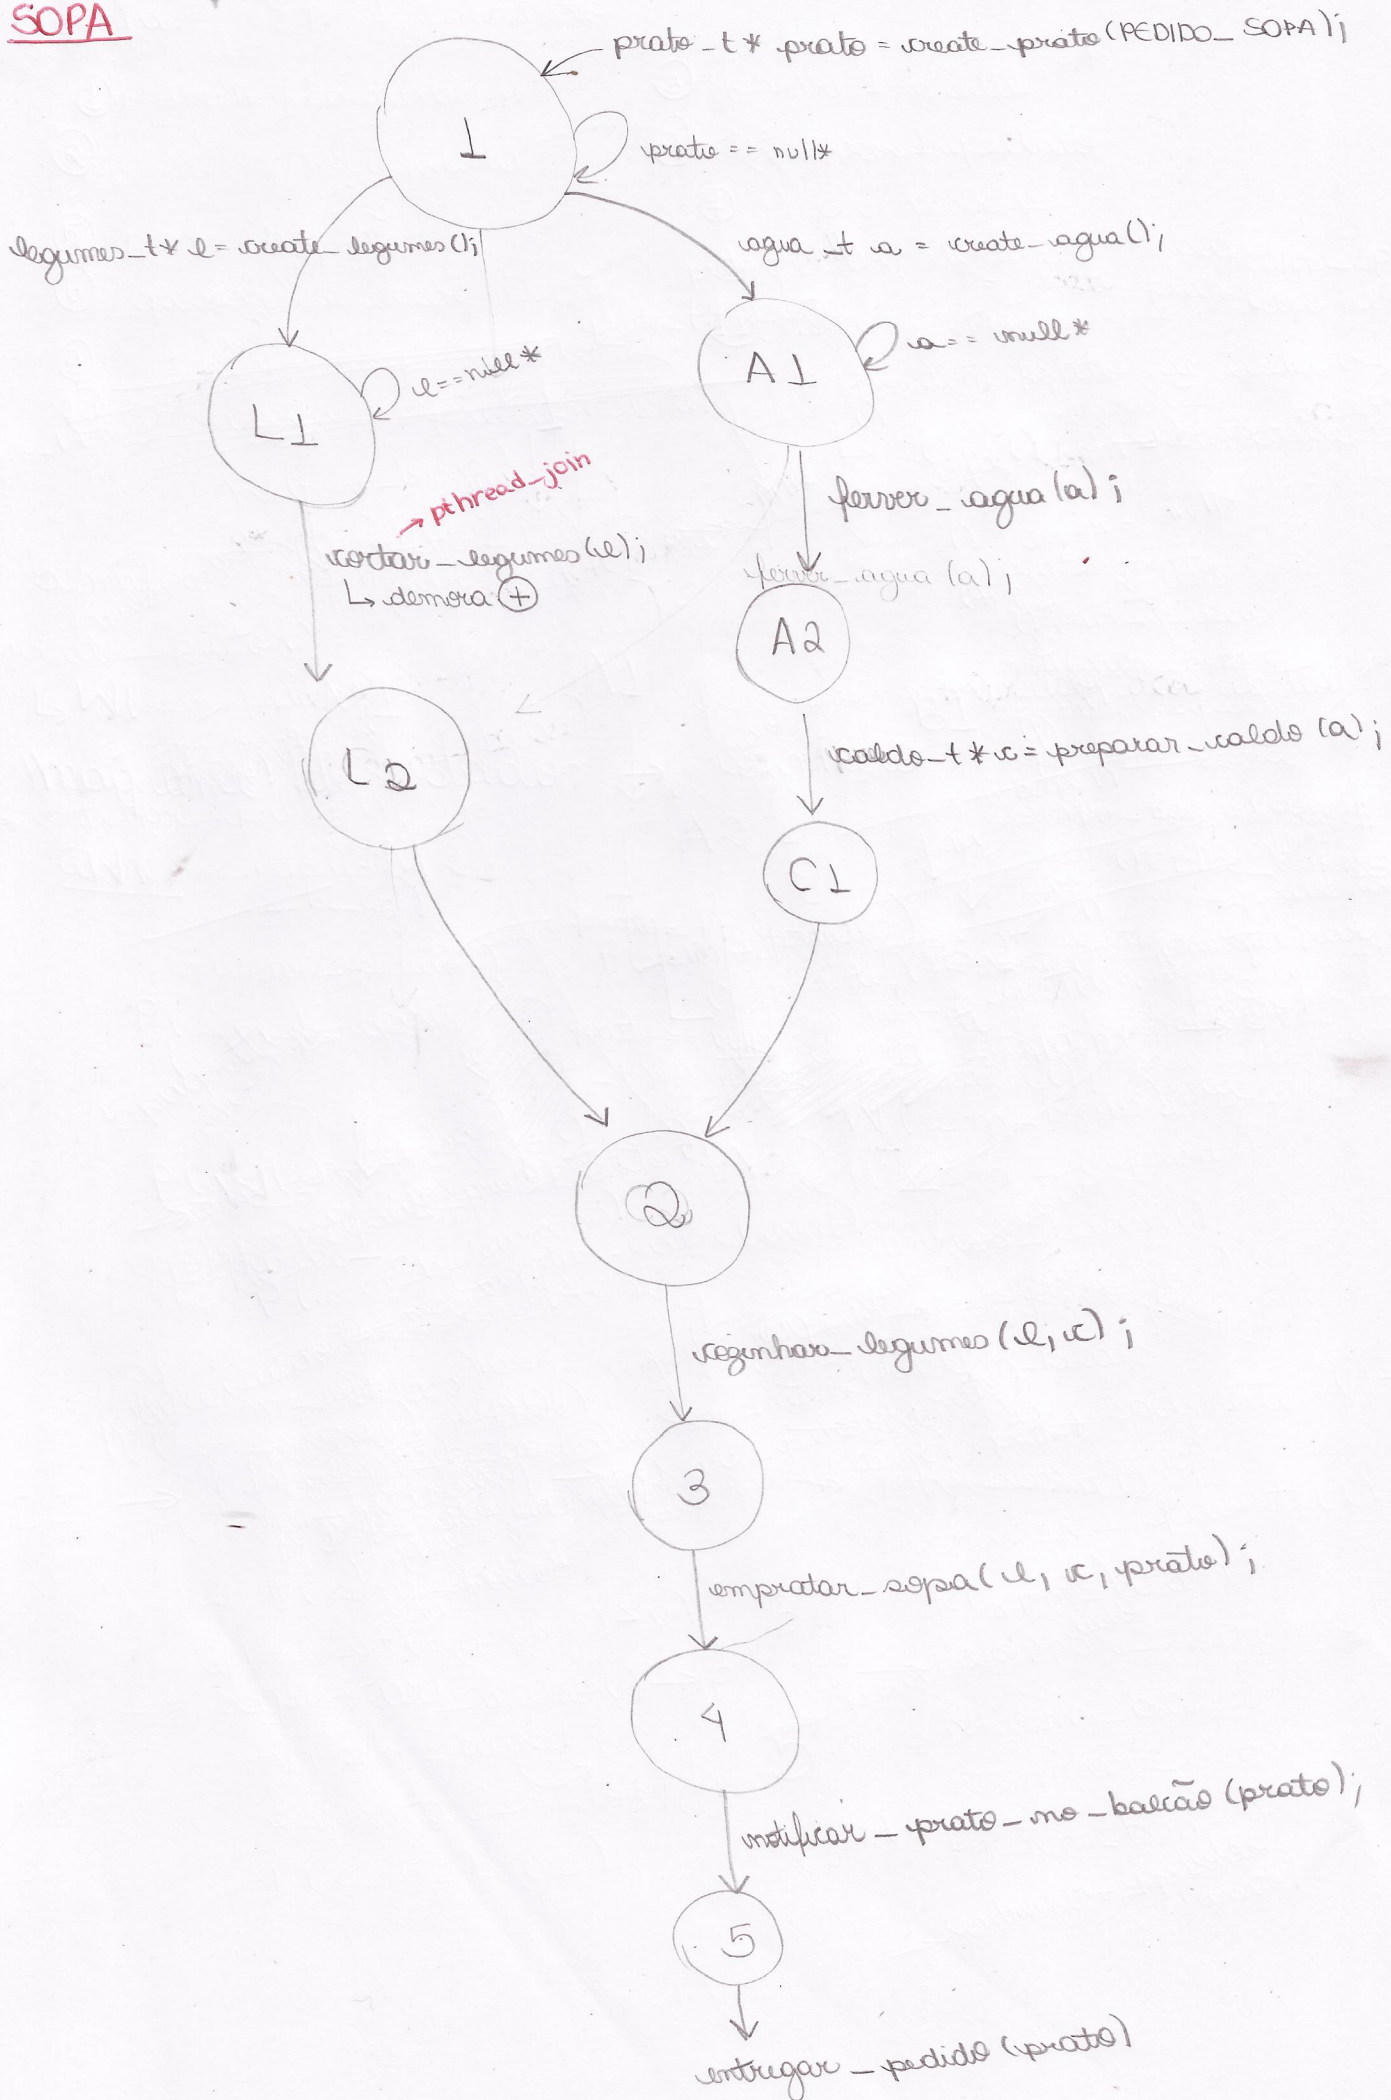 SOPA
prato_t* prato = create_prato(PEDIDO_SOPA);
1
prato == null*
legumes_t* l = create_legumes();
agua_t a = create_agua();
L1
l==null*
A1
a == null*
→ pthread_join
cortar_legumes(l);
↳ demora +
ferver_agua(a);
ferver_agua(a);
A2
L2
caldo_t* c = preparar_caldo(a);
C1
2
cozinhar_legumes(l, c);
3
empratar_sopa(l, c, prato);
4
notificar_prato_no_balcão(prato);
5
entregar_pedido(prato)